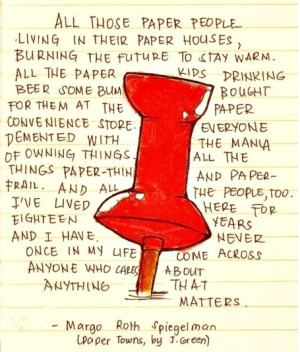 ALL THOSE PAPER PEOPLE
LIVING IN THEIR PAPER HOUSES,
BURNING THE FUTURE TO STAY WARM.
ALL THE PAPER KIDS DRINKING
BEER SOME BUM BOUGHT
FOR THEM AT THE PAPER
CONVENIENCE STORE. EVERYONE
DEMENTED WITH THE MANIA
OF OWNING THINGS. ALL THE
THINGS PAPER-THIN AND PAPER-
FRAIL. AND ALL THE PEOPLE, TOO.
I'VE LIVED HERE FOR
EIGHTEEN YEARS
AND I HAVE NEVER
ONCE IN MY LIFE COME ACROSS
ANYONE WHO CARES ABOUT
ANYTHING THAT
MATTERS.
- Margo Roth Spiegelman
(Paper Towns, by J. Green)